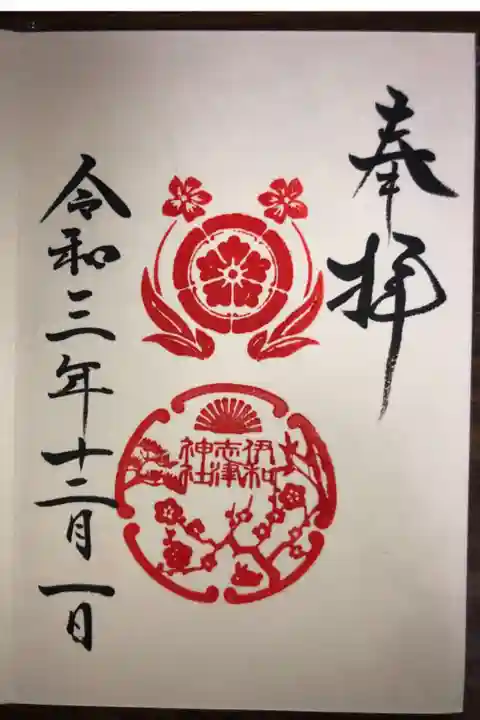 奉拝
伊和
志津
神社
令和三年十二月一日